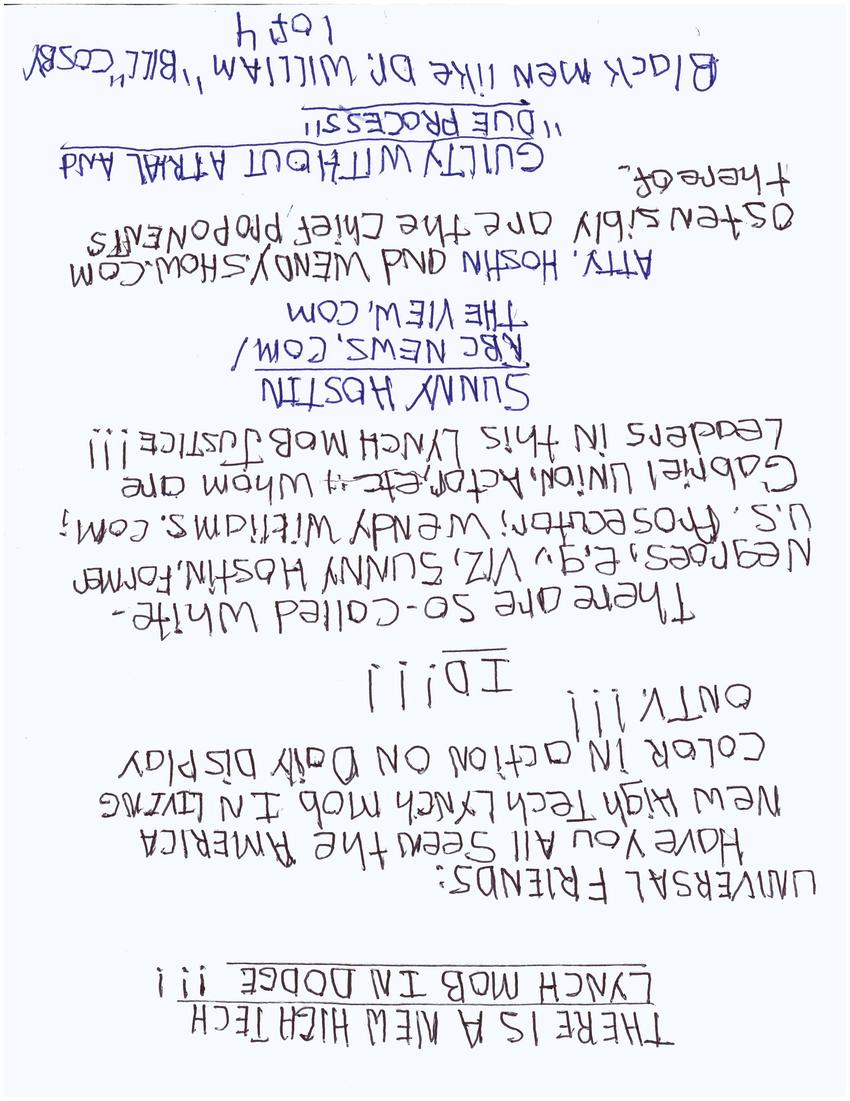 THERE IS A NEW HIGH TECH
LYNCH MOB IN DODGE !!!
UNIVERSAL FRIENDS:
Have You All Seen the AMERICA
New High Tech LYNCH Mob IN LIVING
COLOR IN action ON Daily DISPlay
ON TV. !!!
ID!!!
There are so-called White-
Negroes, E.g., VIZ, SUNNY HOSTIN, FORMER
U.S. Prosecutor; Wendy Williams.com;
Gabriel UNION, Actor, etc. :: Whom are
Leaders IN this LYNCH MOB JUSTICE!!!
SUNNY HOSTIN
ABC NEWS.COM/
THE VIEW.COM
ATTY. HOSTIN and WENDY.SHOW.COM
ostensibly are the chief PROPONENTS
thereof.
GUILTY WITHOUT A TRIAL And
"DUE PROCESS"
Black men like Dr. WILLIAM "BILL" COSBY
1 of 4